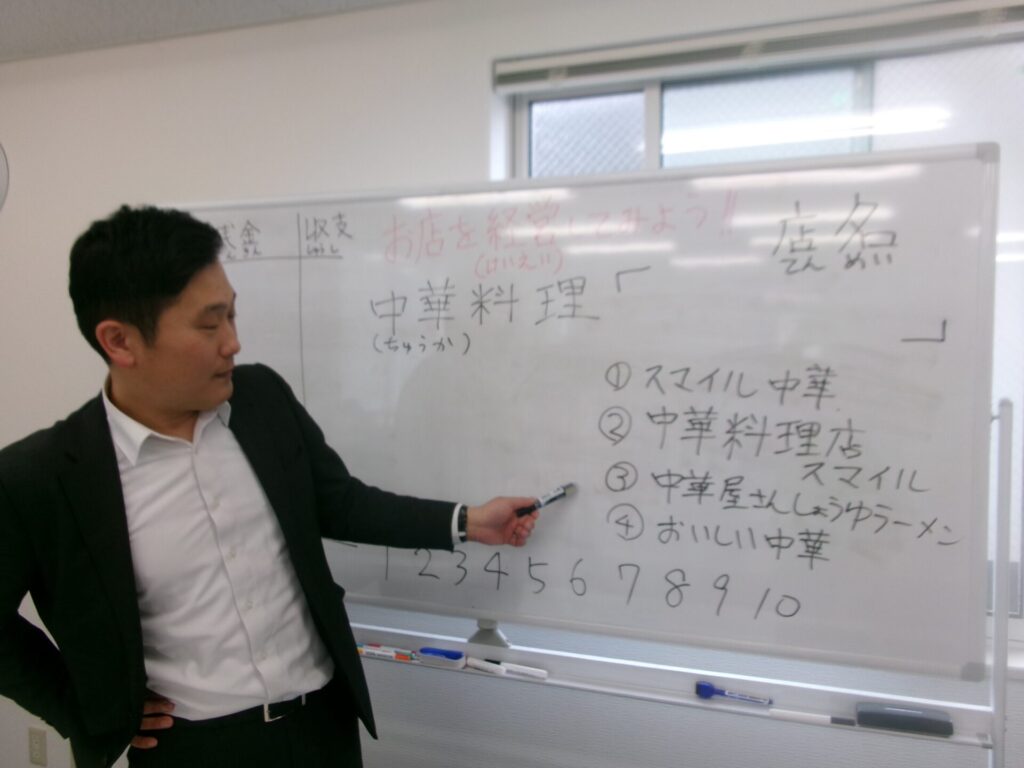 金
収支
お店を経営してみよう!!
(けいえい)
店名
てんめい
中華料理「
(ちゅうか)
」
① スマイル中華
② 中華料理店
スマイル
③ 中華屋さんしょうゆラーメン
④ おいしい中華
1 2 3 4 5 6 7 8 9 10